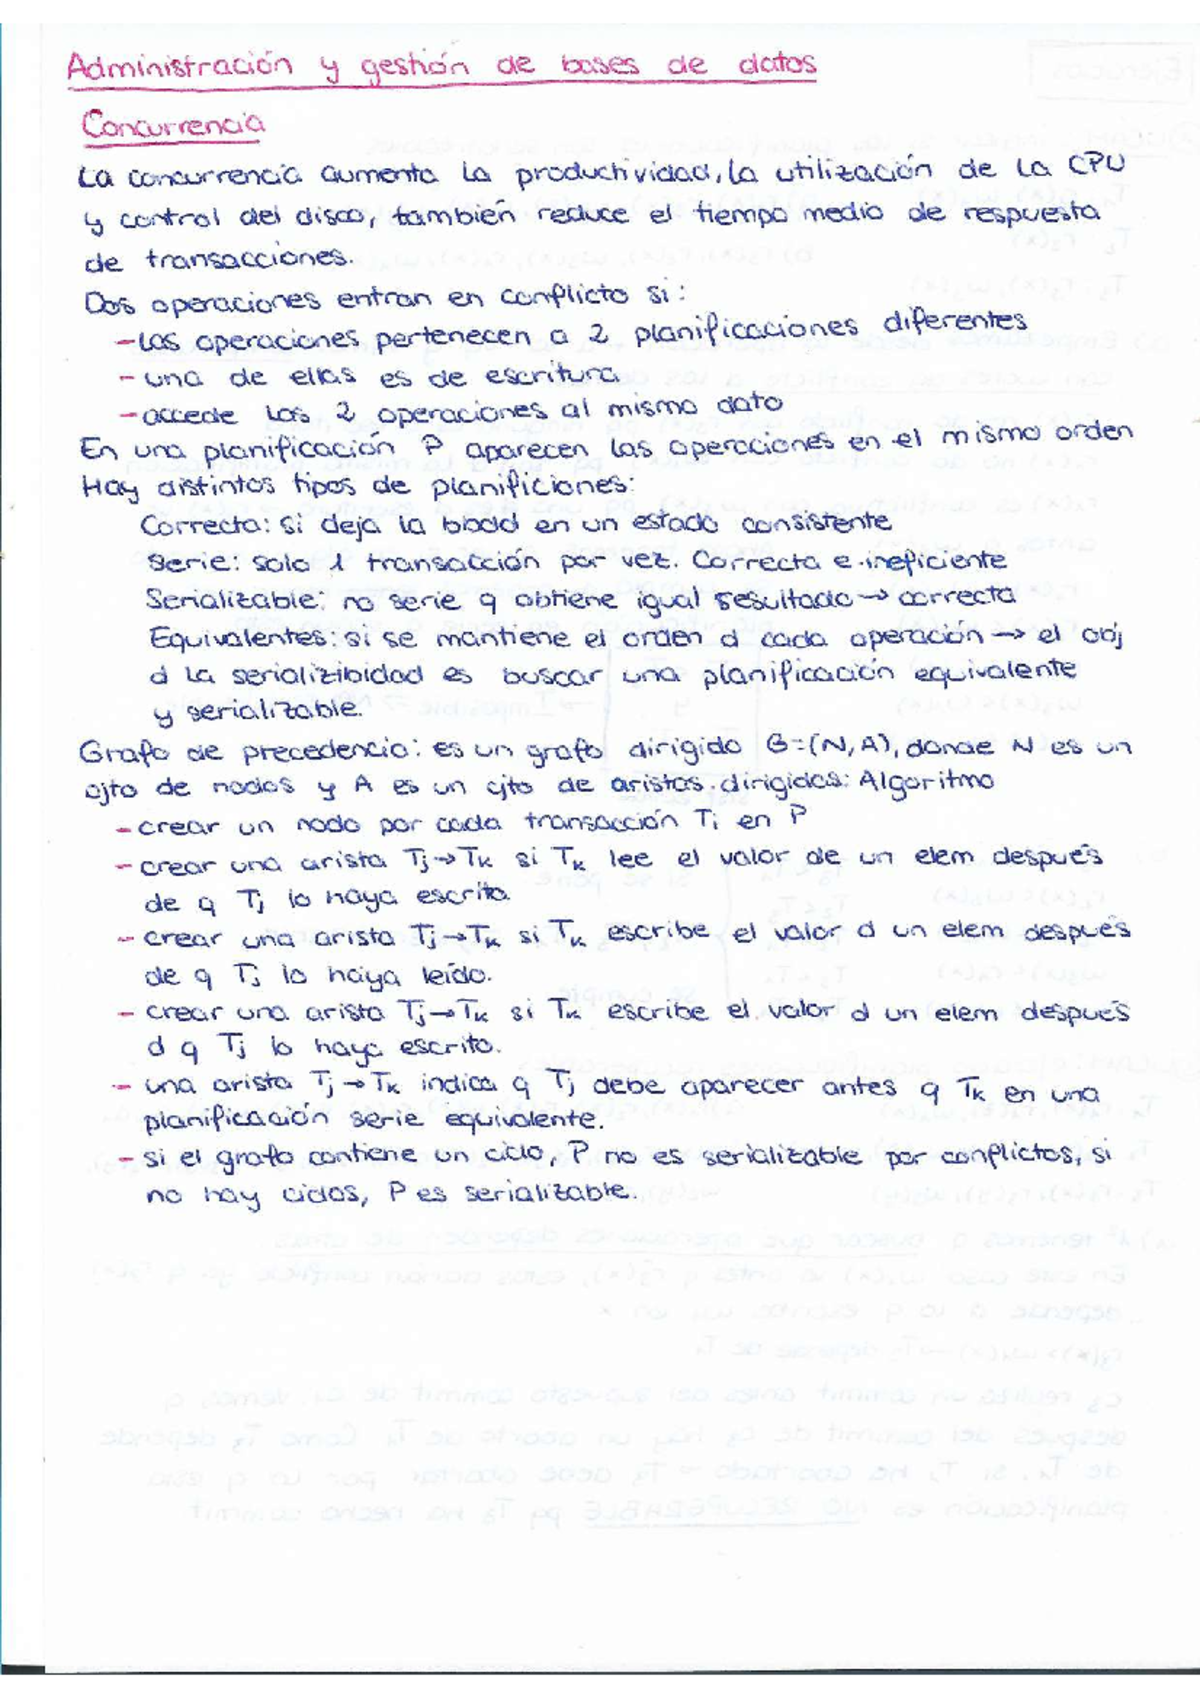 Administración y gestión de bases de datos
Concurrencia
La concurrencia aumenta la productividad, la utilización de la CPU
y control del disco, también reduce el tiempo medio de respuesta
de transacciones.
Dos operaciones entran en conflicto si:
-las operaciones pertenecen a 2 planificaciones diferentes
- una de ellas es de escritura
- accede las 2 operaciones al mismo dato
En una planificación P aparecen las operaciones en el mismo orden
Hay distintos tipos de planificiones:
Correcta: si deja la bbdd en un estado consistente
Serie: solo 1 transacción por vez. Correcta e ineficiente
Serializable: no serie q obtiene igual resultado → correcta
Equivalentes: si se mantiene el orden d cada operación → el obj
d la serializibidad es buscar una planificación equivalente
y serializable.
Grafo de precedencia: es un grafo dirigido G=(N,A), donde N es un
cjto de nodos y A es un cjto de aristas dirigidas: Algoritmo
- crear un nodo por cada transacción Ti en P
- crear una arista Tj→Tk si Tk lee el valor de un elem después
de q Tj lo haya escrito.
- crear una arista Tj→Tk si Tk escribe el valor d un elem después
de q Tj lo haya leído.
- crear una arista Tj→Tk si Tk escribe el valor d un elem después
d q Tj lo haya escrito.
- una arista Tj→Tk indica q Tj debe aparecer antes q Tk en una
planificación serie equivalente.
- si el grafo contiene un ciclo, P no es serializable por conflictos, si
no hay ciclos, P es serializable.